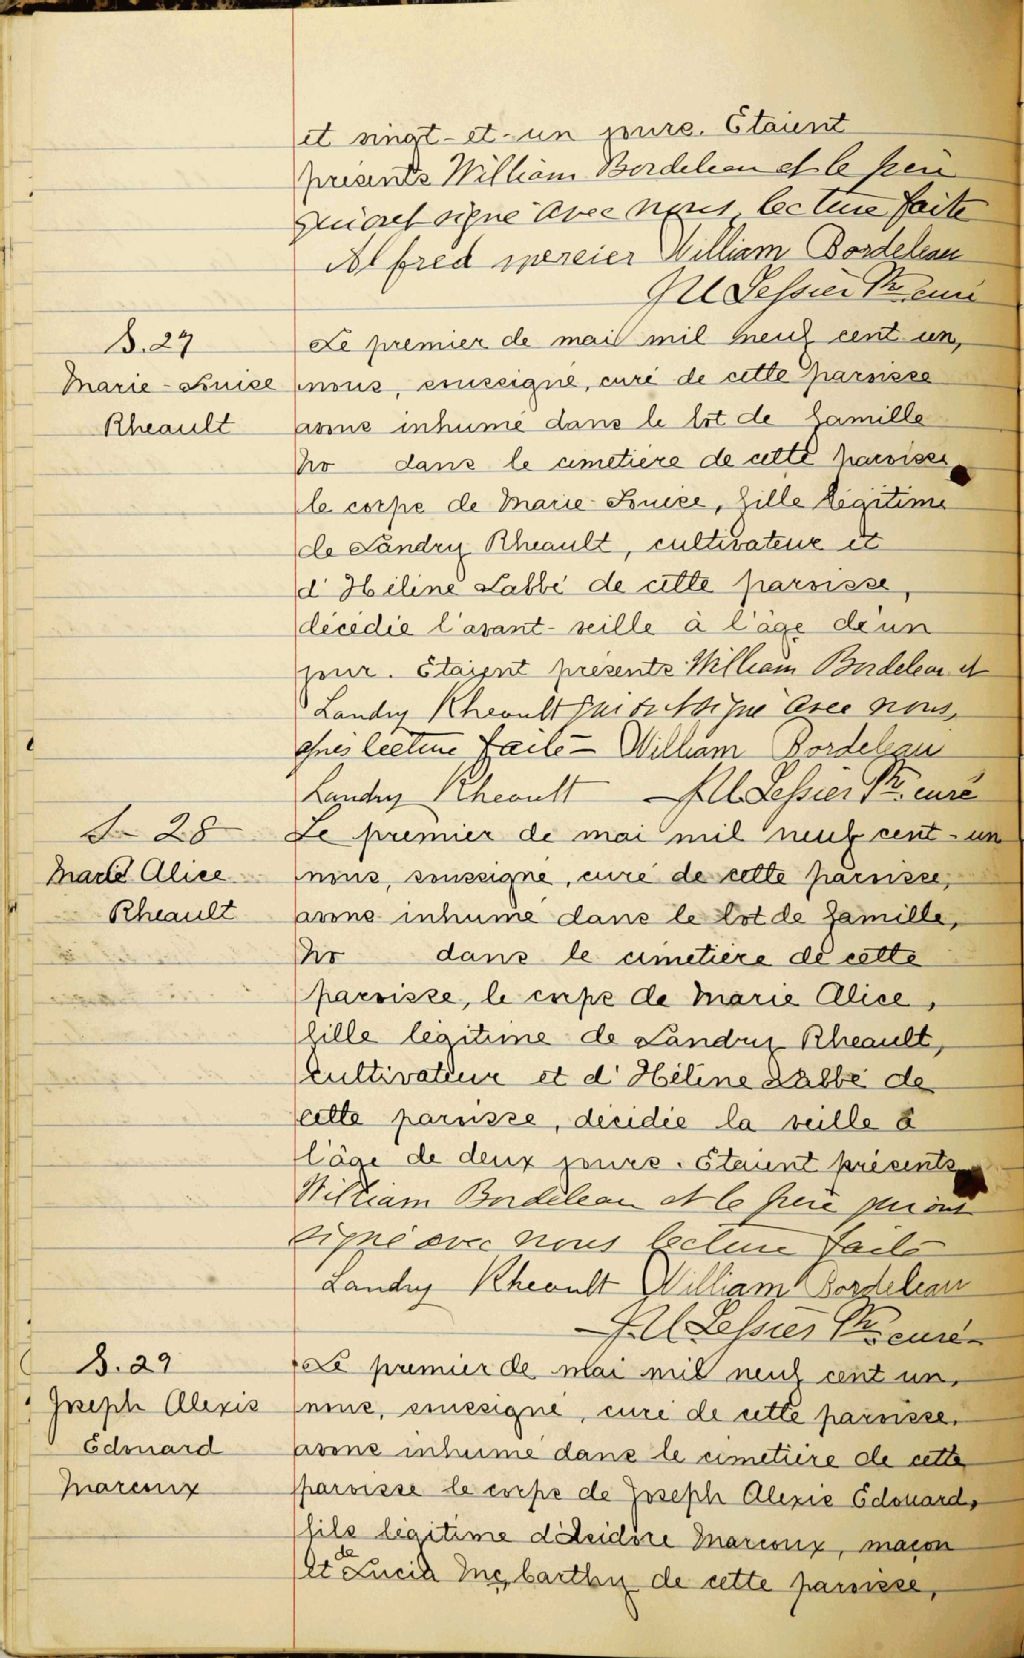 et vingt-et-un jours. Etaient
présents William Bordeleau et le père
qui ont signé avec nous, lecture faite
Alfred Mercier William Bordeleau
J U Tessier Ptre curé
S. 27
Marie-Louise
Rheault
Le premier de mai mil neuf cent un,
nous, soussigné, curé de cette paroisse
avons inhumé dans le lot de famille
No dans le cimetière de cette paroisse
le corps de Marie-Louise, fille légitime
de Landry Rheault, cultivateur et
d'Hélène Labbé de cette paroisse,
décédée l'avant-veille à l'âge d'un
jour. Etaient présents William Bordeleau et
Landry Rheault qui ont signé avec nous,
après lecture faite - William Bordeleau
Landry Rheault J.U. Tessier Ptre. curé
S - 28
Marie Alice
Rheault
Le premier de mai mil neuf cent-un
nous, soussigné, curé de cette paroisse,
avons inhumé dans le lot de famille,
No dans le cimetière de cette
paroisse, le corps de Marie Alice,
fille légitime de Landry Rheault,
cultivateur et d'Hélène Labbé de
cette paroisse, décédée la veille à
l'âge de deux jours. Etaient présents
William Bordeleau et le père qui ont
signé avec nous lecture faite
Landry Rheault William Bordeleau
J.U. Tessier Ptre curé
S. 29
Joseph Alexis
Edouard
Marcoux
Le premier de mai mil neuf cent un,
nous, soussigné, curé de cette paroisse,
avons inhumé dans le cimetière de cette
paroisse le corps de Joseph Alexis Edouard,
fils légitime d'Isidore Marcoux, maçon
et de Lucia Mc Carthy de cette paroisse,